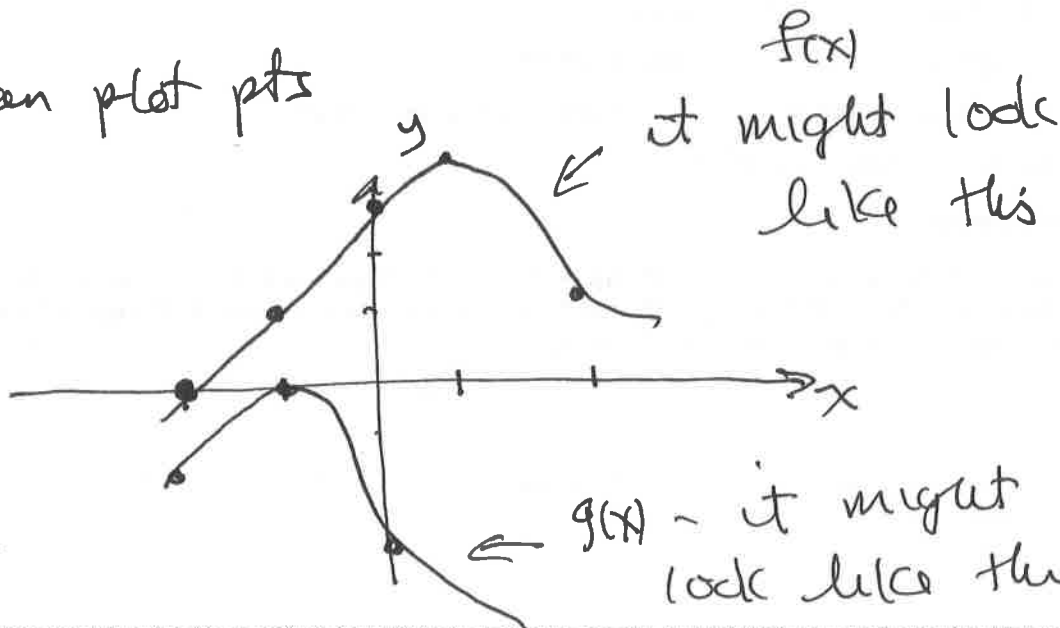 plot pts
f(x)
it might look
like this
y
x
g(x) - it might
look like